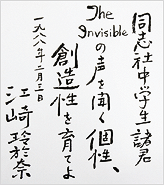 同志社中学生諸君
The Invisible
の声を聞く個性、
創造性を育てよ
一九八八年二月三日
江崎玲於奈